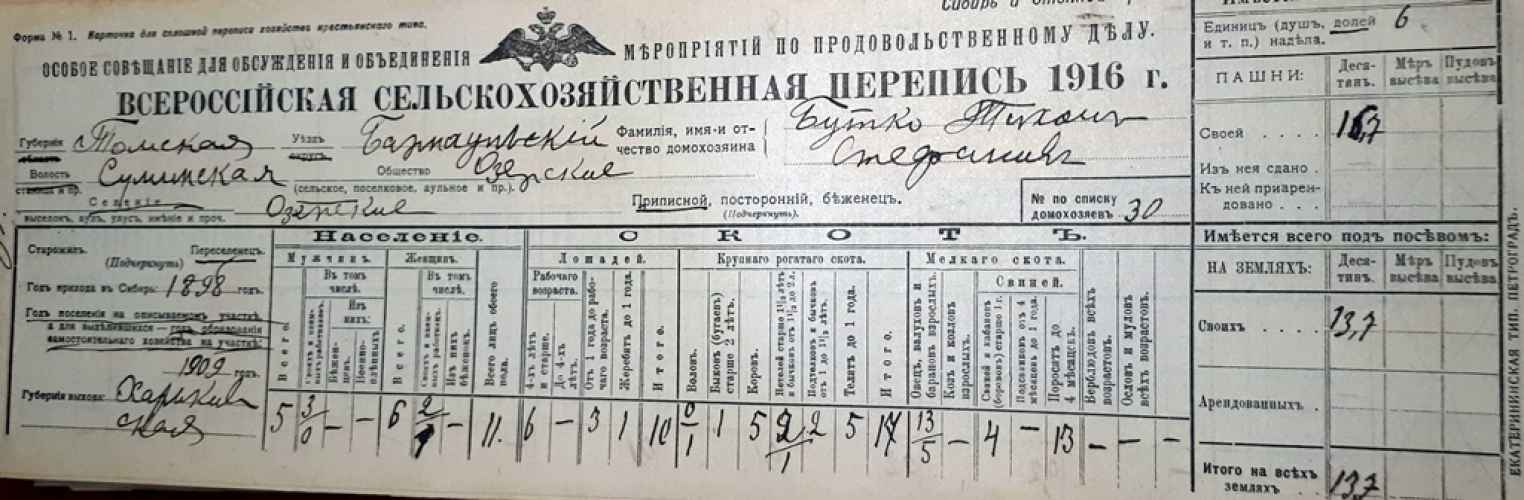 Форма № 1. Карточка для сплошной переписи хозяйствъ крестьянскаго типа.
Сибирь и
ОСОБОЕ СОВѢЩАНІЕ ДЛЯ ОБСУЖДЕНІЯ И ОБЪЕДИНЕНІЯ МѢРОПРІЯТІЙ ПО ПРОДОВОЛЬСТВЕННОМУ ДѢЛУ.
ВСЕРОССІЙСКАЯ СЕЛЬСКОХОЗЯЙСТВЕННАЯ ПЕРЕПИСЬ 1916 г.
Губернія Томская Уѣздъ Барнаульскій Фамилія, имя и от-
чество домохозяина Бутко Тихонъ
область округъ
Волость Суминская Общество Озерское
станица и пр. (сельское, поселковое, аульное и пр.).
Селеніе Озерское
выселокъ, аулъ, улусъ, имѣніе и проч.
Приписной, посторонній, бѣженецъ.
(Подчеркнуть).
№ по списку
домохозяевъ 30
Старожилъ. Переселенецъ.
(Подчеркнуть)
Годъ прихода въ Сибирь: 1898 годъ.
Годъ поселенія на описываемомъ участкѣ,
а для выдѣлившихся — годъ образованія
самостоятельнаго хозяйства на участкѣ:
1909 годъ.
Губернія выхода: Харьков
ская
Населеніе.
Мужчинъ. Женщинъ.
Всего.
Въ томъ числѣ.
Изъ нихъ:
Бѣжен-цевъ.
Военно-плѣнныхъ
Всего.
Въ томъ числѣ.
Изъ нихъ бѣженокъ.
Всего лицъ обоего пола.
СКОТЪ.
Лошадей.
Рабочаго возраста.
4-хъ лѣтъ и старше.
До 4-хъ лѣтъ.
Отъ 1 года до рабо-чаго возраста.
Жеребятъ до 1 года.
Итого.
Крупнаго рогатаго скота.
Воловъ.
Быковъ (бугаевъ) старше 2 лѣтъ.
Коровъ.
Нетелей старше 1½ лѣтъ и бычковъ отъ 1½ до 2 л.
Подтелковъ и бычковъ отъ 1 до 1½ лѣтъ.
Телятъ до 1 года.
Итого.
Мелкаго скота.
Овецъ, валуховъ и барановъ взрослыхъ.
Козъ и козловъ взрослыхъ.
Свиней.
Свиней и кабановъ (борововъ) старше 1 г.
Подсвинковъ отъ 4 мѣсяцевъ до 1 года.
Поросятъ до 4 мѣсяцевъ.
Верблюдовъ всѣхъ возрастовъ.
Ословъ и муловъ всѣхъ возрастовъ.
5 3/0 — — 6 2/ — 11. 6 — 3 1 10 0/1 1 5 2/1 2 5 17 13/5 — 4 — 13 — — —
Единицъ (душъ, долей
и т. п.) надѣла. 6
ПАШНИ: Деся-тинъ. Мѣръ высѣва Пудовъ высѣва.
Своей
Изъ нея сдано
Къ ней приарен-
довано
Имѣется всего подъ посѣвомъ:
НА ЗЕМЛЯХЪ: Деся-тинъ. Мѣръ высѣва Пудовъ высѣва.
Своихъ 13,7
Арендованныхъ
Итого на всѣхъ
земляхъ 13,7
ЕКАТЕРИНИНСКАЯ ТИП. ПЕТРОГРАДЪ.